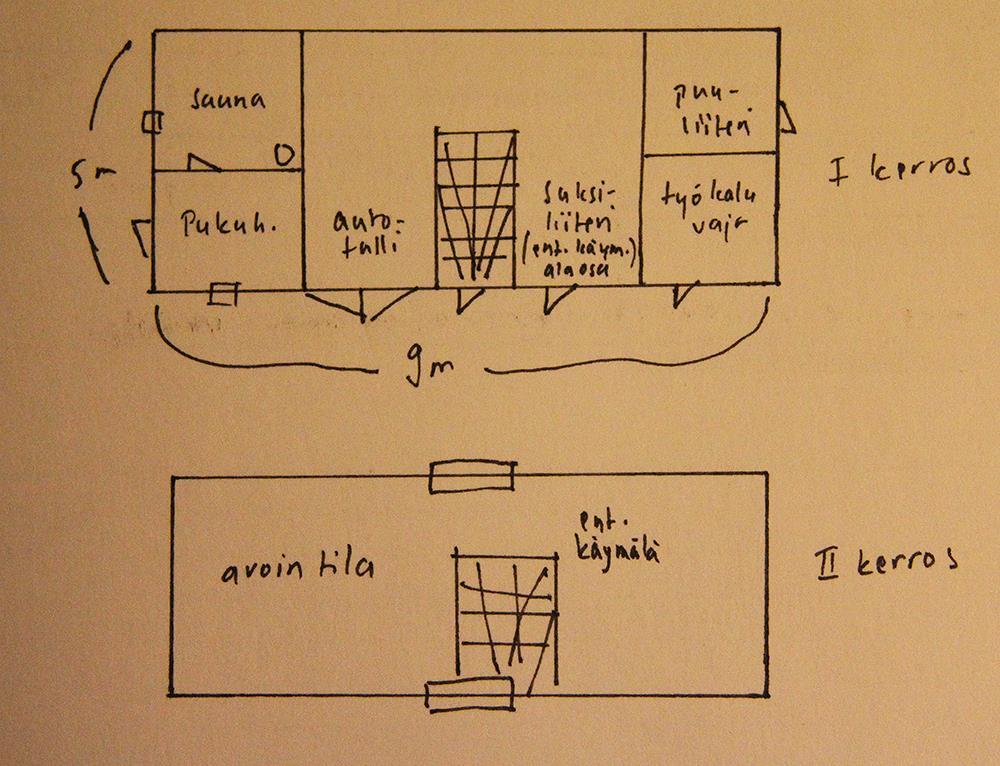 sauna
puu-
liiteri
I kerros
5 m
Pukuh.
auto-
talli
suksi-
liiteri
(ent. käym.)
alaosa
työkalu
vaja
9 m
ent.
käymälä
avoin tila
II kerros